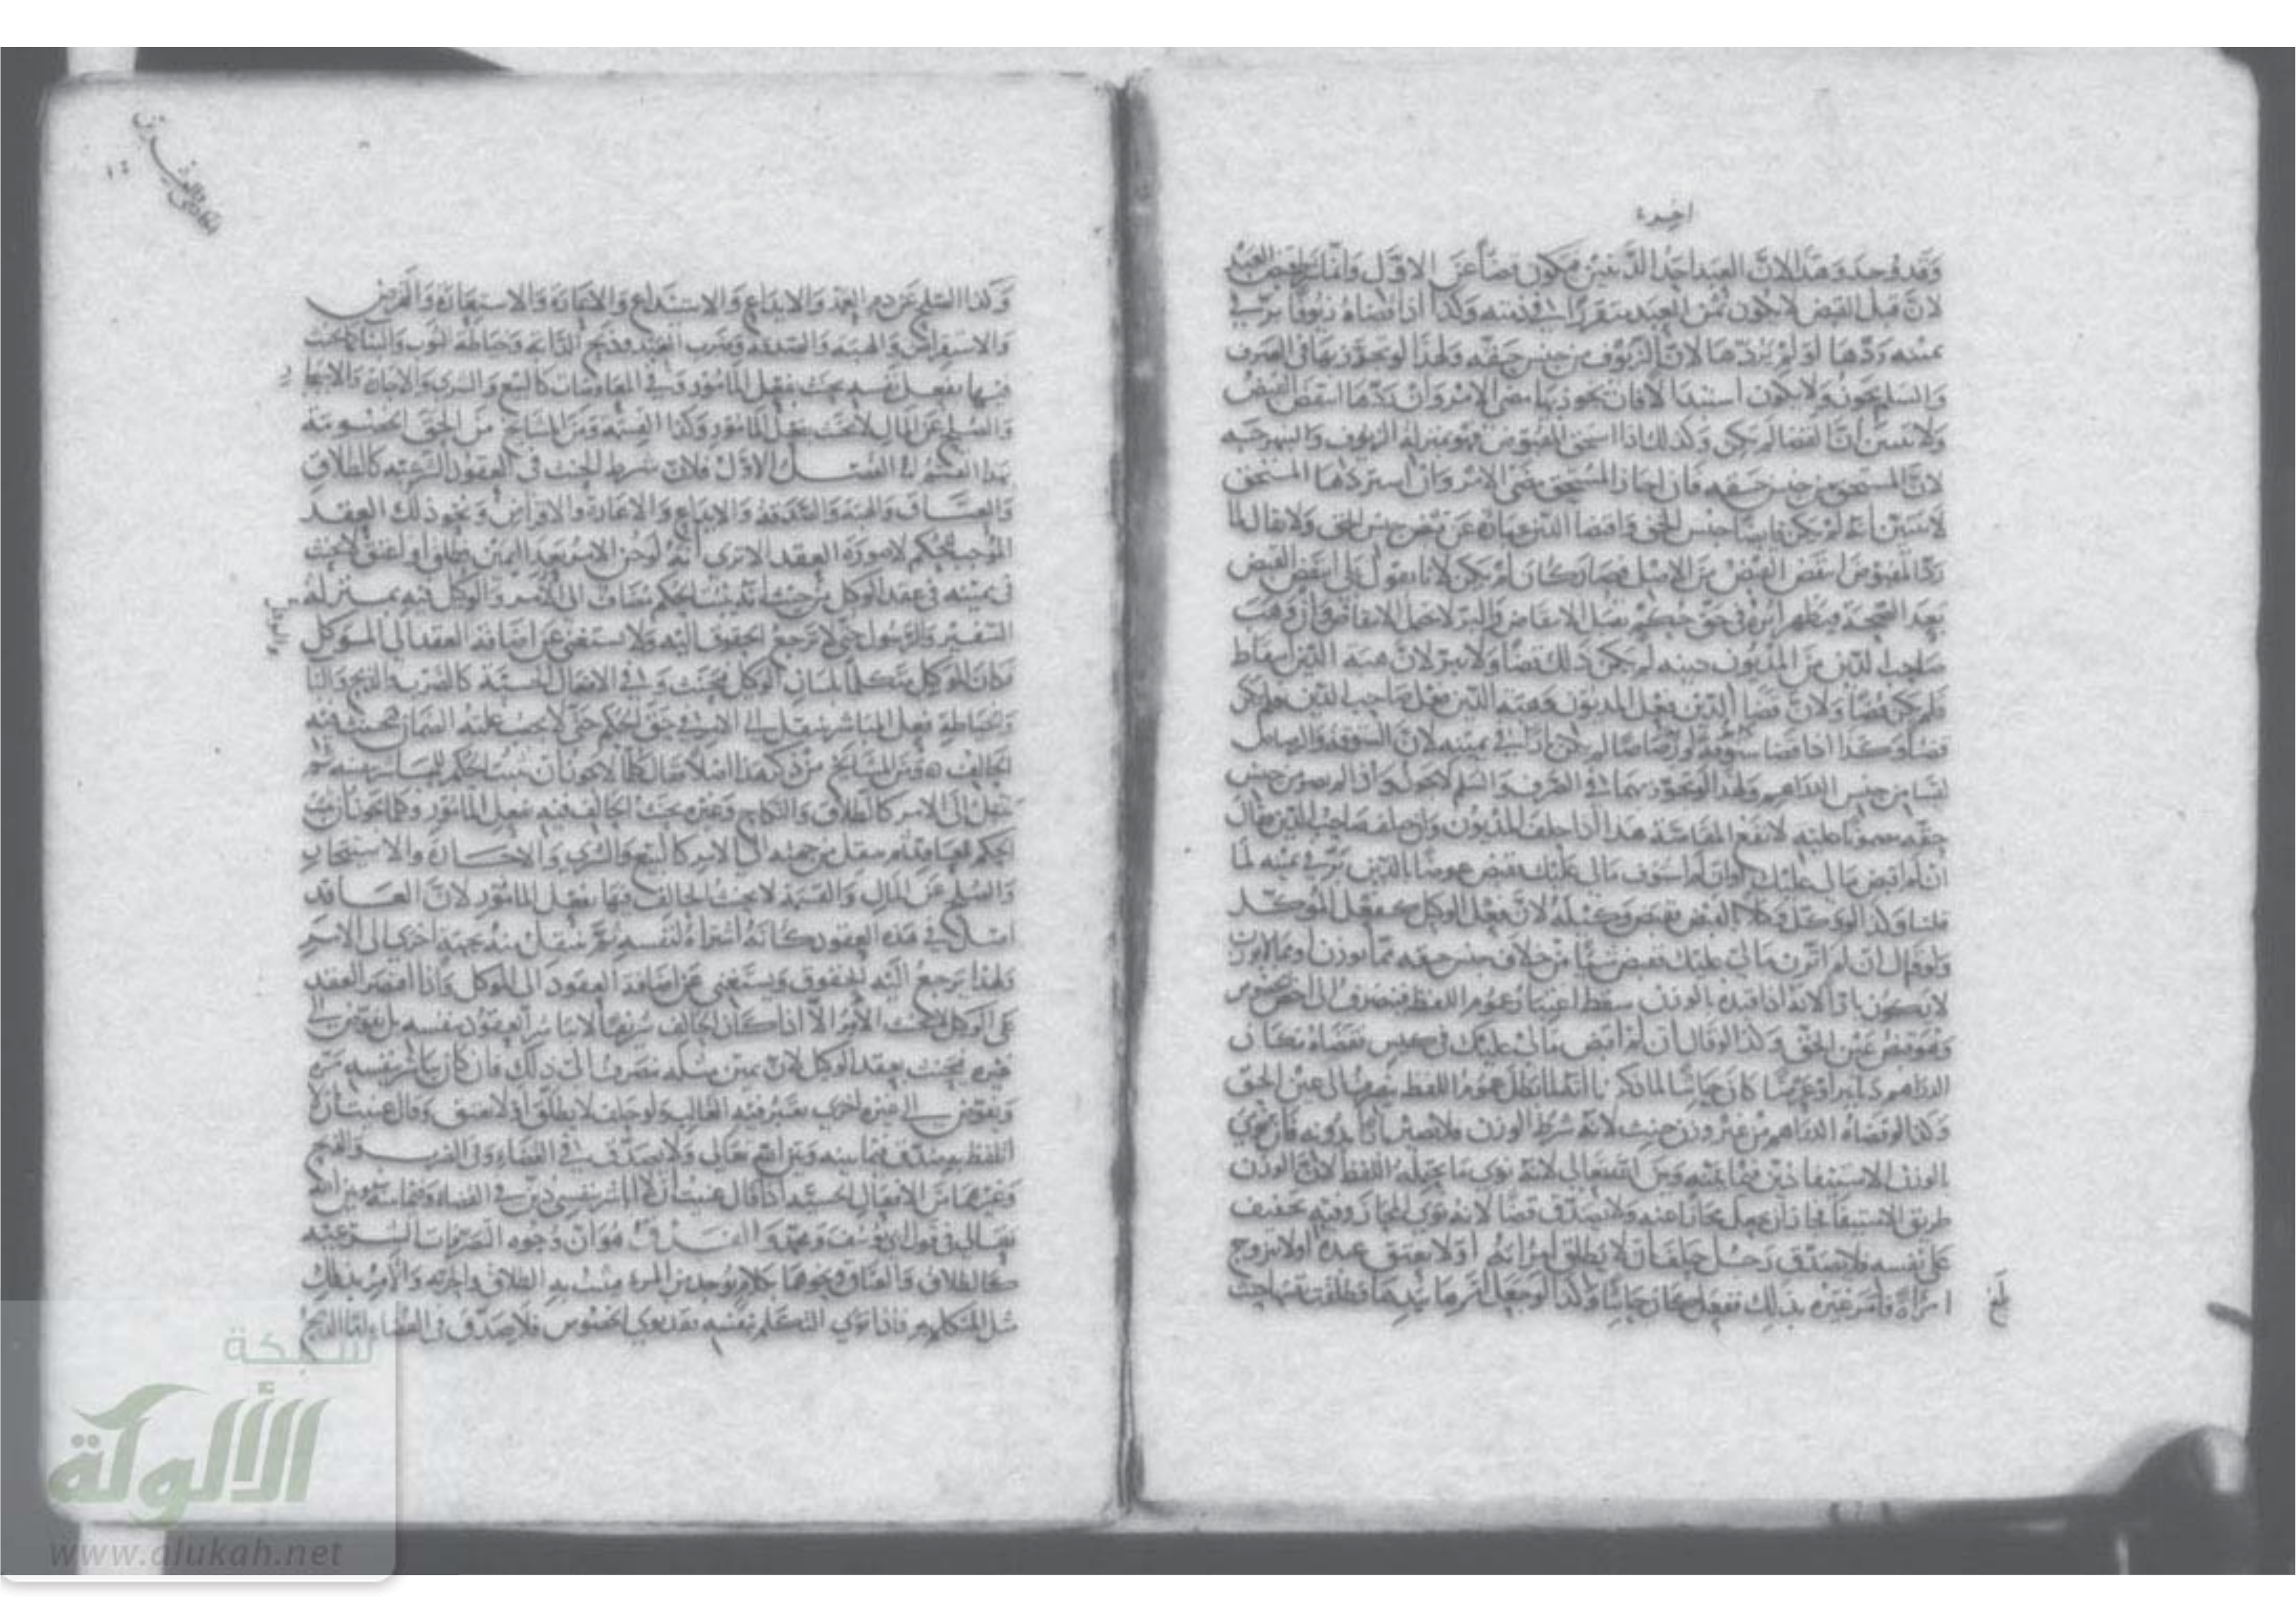 وقد وجد وهذا لان العبد احد الدينين فيكون قصاصا عن الاول وانما قبض العبد
لان قبل القبض لا يكون ثمن العبد متقررا في ذمته وكذا اذا قضاه زيوفا بر في
يمينه ردها او لم يردها لان الزيوف من جنس حقه ولهذا لو تجوز بها في الصرف
والسلم يجوز ولا يكون استبدالا فان تجوز بها مضى الامر وان ردها انتقض القبض
ولا يتبين ان القضا لم يكن وكذلك اذا استحق المقبوض فهو بمنزلة الزيوف والبهرجة
لان المستحق من جنس حقه فان اجاز المستحق مضى الامر وان استردها المستحق
لا يتبين انه لم يكن جنس الحق وقضا الدين عبارة عن قبض جنس الحق ولا يقال لما
رد المقبوض انتقض القبض من الاصل فصار كان لم يكن لانا نقول بلى انتقض القبض
بعد الصحة فيظهر اثره في حق حكم يقبل الانتقاض والبر لا يحتمل الانتقاض وان وهب
صاحب الدين من المديون دينه لم يكن ذلك قضا ولا يبر لان هبة الدين اسقاط
فلم يكن قضا ولان قضا الدين فعل المديون وهبة الدين فعل صاحب الدين فلم يكن
قضا وكذا اذا قضا ستوقة او رصاصا لم يكن بارا في يمينه لان الستوقة والرصاص
ليسا من جنس الدراهم ولهذا لو تجوز بهما في الصرف والسلم لا يجوز واذا لم يصر من جنس
حقه مضمونا عليه لا تقع المقاصة هذا اذا حلف المديون وان حلف صاحب الدين فقال
ان لم اقبض مالي عليك او ان لم استوف مالي عليك فقبض عوضا الدين بر في يمينه لما
قلنا وكذا لو وكل وكيلا القبض فقبض وكيله لان فعل الوكيل كفعل الموكل
ولو قال ان لم اتزن مالي عليك فقبض شيئا من خلاف جنس حقه مما يوزن او مما لا يوزن
لا يكون بارا لانه اذا قيده بالوزن سقط اعتبار عموم اللفظ فينصرف الى الخصوص
وهو قبض عين الحق وكذا لو قال ان لم اقبض مالي عليك في كيس فقضاه مكان
الدراهم دنانير او عرضا كان حانثا لما ذكرنا انه لما بطل عموم اللفظ ينصرف الى عين الحق
وكذا لو قضاه الدراهم من غير وزن حنث لانه شرط الوزن فلا يصير بارا بدونه فان نوى
بالوزن الاستيفا دين فيما بينه وبين الله تعالى لانه نوى ما يحتمله اللفظ لان الوزن
طريق الاستيفا فجاز ان يجعل مجازا عنه ولا يصدق قضا لانه نوى المجاز وفيه تخفيف
على نفسه فلا يصدق رجل حلف ان لا يطلق امراته او لا يعتق عبده او لا يتزوج
امراة وامر غيره بذلك ففعل كان حانثا وكذا لو جعل امرها بيدها فطلقت نفسها حنث
بلغ
وكذا الصلح عن دم العمد والايداع والاستيداع والاعارة والاستعارة والقرض
والاستقراض والهبة والصدقة وضرب العبد وذبح الشاة وخياطة الثوب والبنا يحنث
فيها بفعل نفسه يحنث بفعل المامور وفي المعاوضات كالبيع والشرى والاجارة والاستيجار
والصلح عن المال لا يحنث بفعل المامور وكذا القسمة ومن المشايخ من الحق الخصومة
بهذا القسم اما الفصل الاول فلان شرط الحنث في العقود الشرعية كالطلاق
والعتاق والهبة والصدقة والايداع والاعارة والاقراض ونحو ذلك العقد
الموجب للحكم لا صورة العقد الا ترى انه لو جن الامر بعد اليمين فطلق او اعتق لا يحنث
في يمينه في عقد الوكيل من حيث انه يثبت الحكم مضاف الى الامر والوكيل فيه بمنزلة
السفير والرسول حتى لا ترجع الحقوق اليه ولا يستغني عن اضافة العقد الى الموكل
فكان الموكل متكلما بلسان الوكيل فيحنث وفي الافعال الحسية كالضرب والذبح والبنا
والخياطة فعل المباشر ينتقل الى الامر في حق الحكم حتى لا يجب عليه الضمان فيحنث فيه
الحالف ومن المشايخ من ذكر لهذا اصلا فقال كلما لا يجوز ان يثبت الحكم للمباشر بنفسه ثم
ينتقل الى الامر كالطلاق والنكاح وغيره يحنث الحالف فيه بفعل المامور وكلما يجوز ان يثبت
الحكم فيه للمامور ثم ينتقل من جهته الى الامر كالبيع والشرى والاجارة والاستيجار
والصلح عن المال والقسمة لا يحنث الحالف فيها بفعل المامور لان العاقد
اصل في هذه العقود كانه اشتراه لنفسه ثم ينتقل منه بجهة اخرى الى الامر
ولهذا يرجع اليه الحقوق ويستغني عن اضافة العقود الى الموكل واذا اقتصر العقد
على الوكيل لا يحنث الامر الا اذا كان الحالف شريفا لا يباشر العقود بنفسه بل يفوض الى
غيره يحنث بعقد الوكيل لان يمين مثله تنصرف الى ذلك فان كان يباشر بنفسه مرة
ويفوض الى غيره اخرى يعتبر فيه الغالب ولو حلف لا يطلق او لا يعتق وقال عنيت ان لا
اتلفظ به يصدق فيما بينه وبين الله تعالى ولا يصدق في القضاء وفي الضرب والذبح
وغيرهما من الافعال الحسية اذا قال عنيت ان لا اباشر بنفسي دين في القضاء وفيما بينه وبين الله
تعالى في قول ابي يوسف ومحمد والفرق هو ان وجوه التصرفات الشرعية
كالطلاق والعتاق ونحوهما كلام يوجد من المرء يثبت به الطلاق والحرية والامر بذلك
مثل المتكلم به فاذا نوى التكلم بنفسه فقد نوى الخصوص فلا يصدق في القضاء اما الذبح
شبكة
الألوكة
www.alukah.net